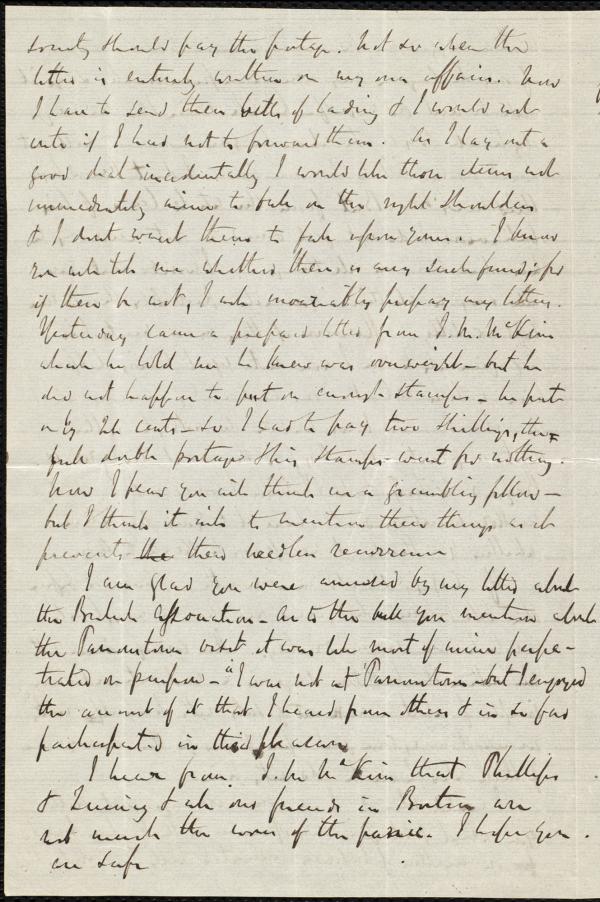 society should pay the postage. Not so when the
letter is entirely written on my own affairs. Now
I have to send them bills of lading & I would not
write if I had not to forward them. As I lay out a
good deal incidentally I would like those items not
immediately mine to fall on the right shoulders
& I don't want them to fall upon yours. I know
you will tell me whether there is any such fund; for
if there be not, I will invariably prepay my letters.
Yesterday came a prepaid letter from J. M. McKim
which he told me he knew was overweight - but he
did not happen to put on enough stamps - he put
only 24 cents - so I had to pay two shillings, the
full double postage. His stamps went for nothing.
Now I fear you will think me a grumbling fellow -
but I think it well to mention these things as it
prevents the their needless recurrence
I am glad you were amused by my letter about
the British Association - As to the bull you mention about
the Parsonstown visit it was like most of mine perpe-
trated on purpose - "I was not at Parsonstown - but I enjoyed
the account of it that I heard from others & in so far
participated in their pleasure
I hear from J. M. McKim that Phillips
& Quincy & all our friends in Boston are
not much the worse of the panic. I hope you
are safe